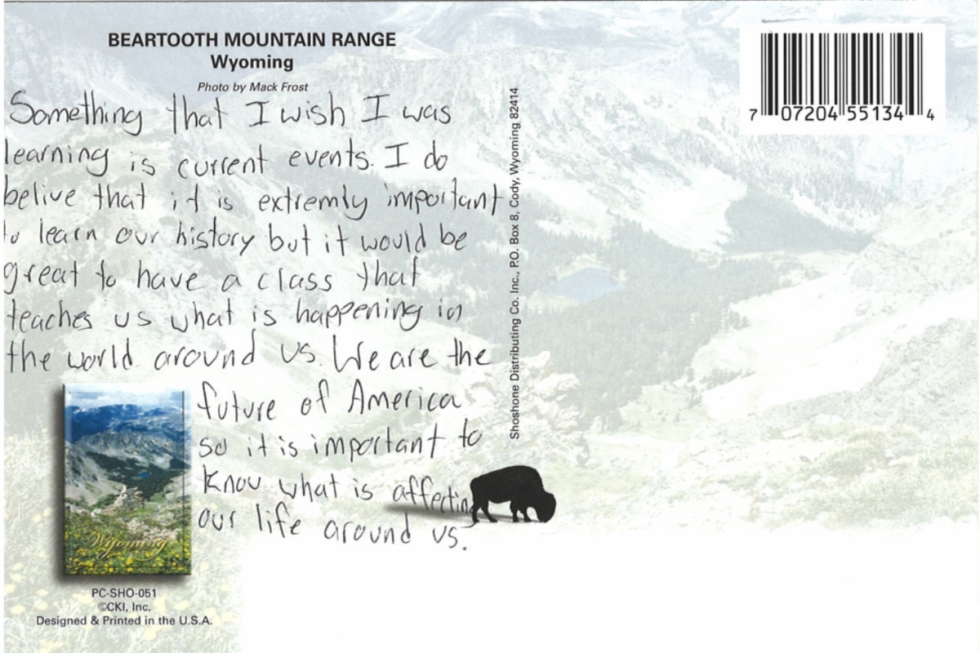 BEARTOOTH MOUNTAIN RANGE
Wyoming
Photo by Mack Frost
Something that I wish I was
learning is current events. I do
belive that it is extremly important
to learn our history but it would be
great to have a class that
teaches us what is happening in
the world around us. We are the
future of America
so it is important to
know what is affecting
our life around us.
Wyoming
PC-SHO-051
©CKI, Inc.
Designed & Printed in the U.S.A.
Shoshone Distributing Co. Inc., P.O. Box 8, Cody, Wyoming 82414
7 07204 55134 4